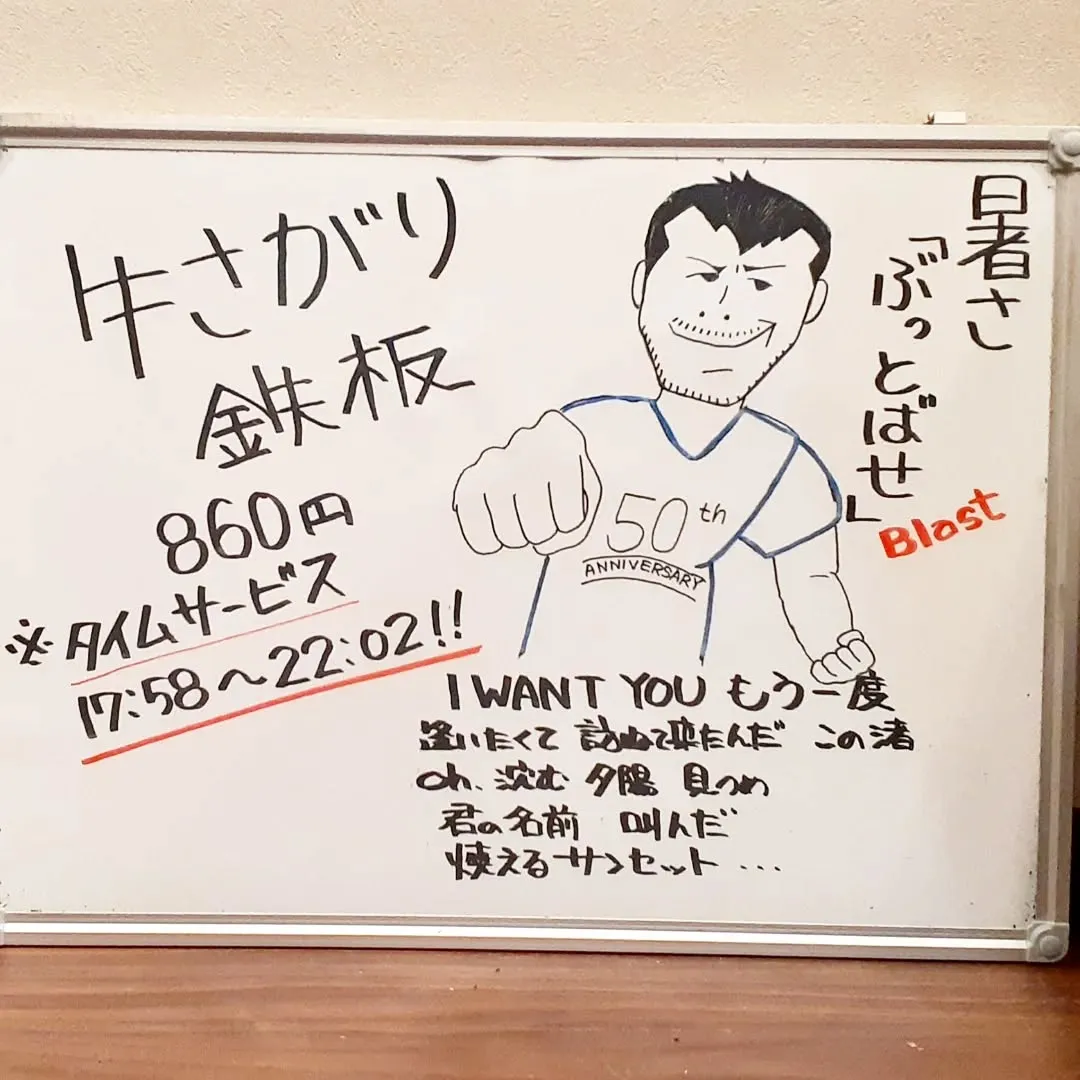 牛さがり
鉄板
860円
※タイムサービス
17:58〜22:02!!
暑さ
「ぶっとばせ」
Blast
50th
ANNIVERSARY
I WANT YOU もう一度
逢いたくて 訪ねて来たんだ この渚
Oh、沈む 夕陽 見つめ
君の名前 叫んだ
燃えるサンセット …